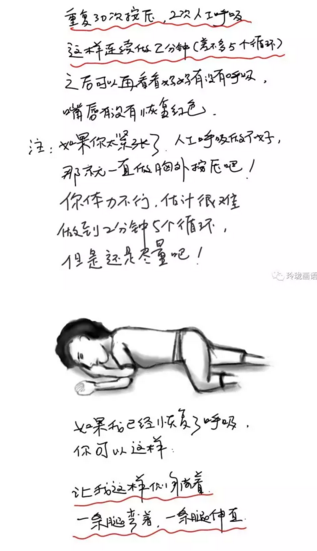 重复30次按压,2次人工呼吸
这样连续做2分钟(差不多5个循环)
之后可以再看看妈妈有没有呼吸,
嘴唇有没有恢复红色.
注:如果你太紧张了,人工呼吸做不好,
那就一直做胸外按压吧!
你体力不行,估计很难
做到2分钟5个循环,
但是还是尽量吧!
玲珑画语
如果我已经恢复了呼吸,
你可以这样:
让我这样侧躺着
一条腿弯着,一条腿伸直